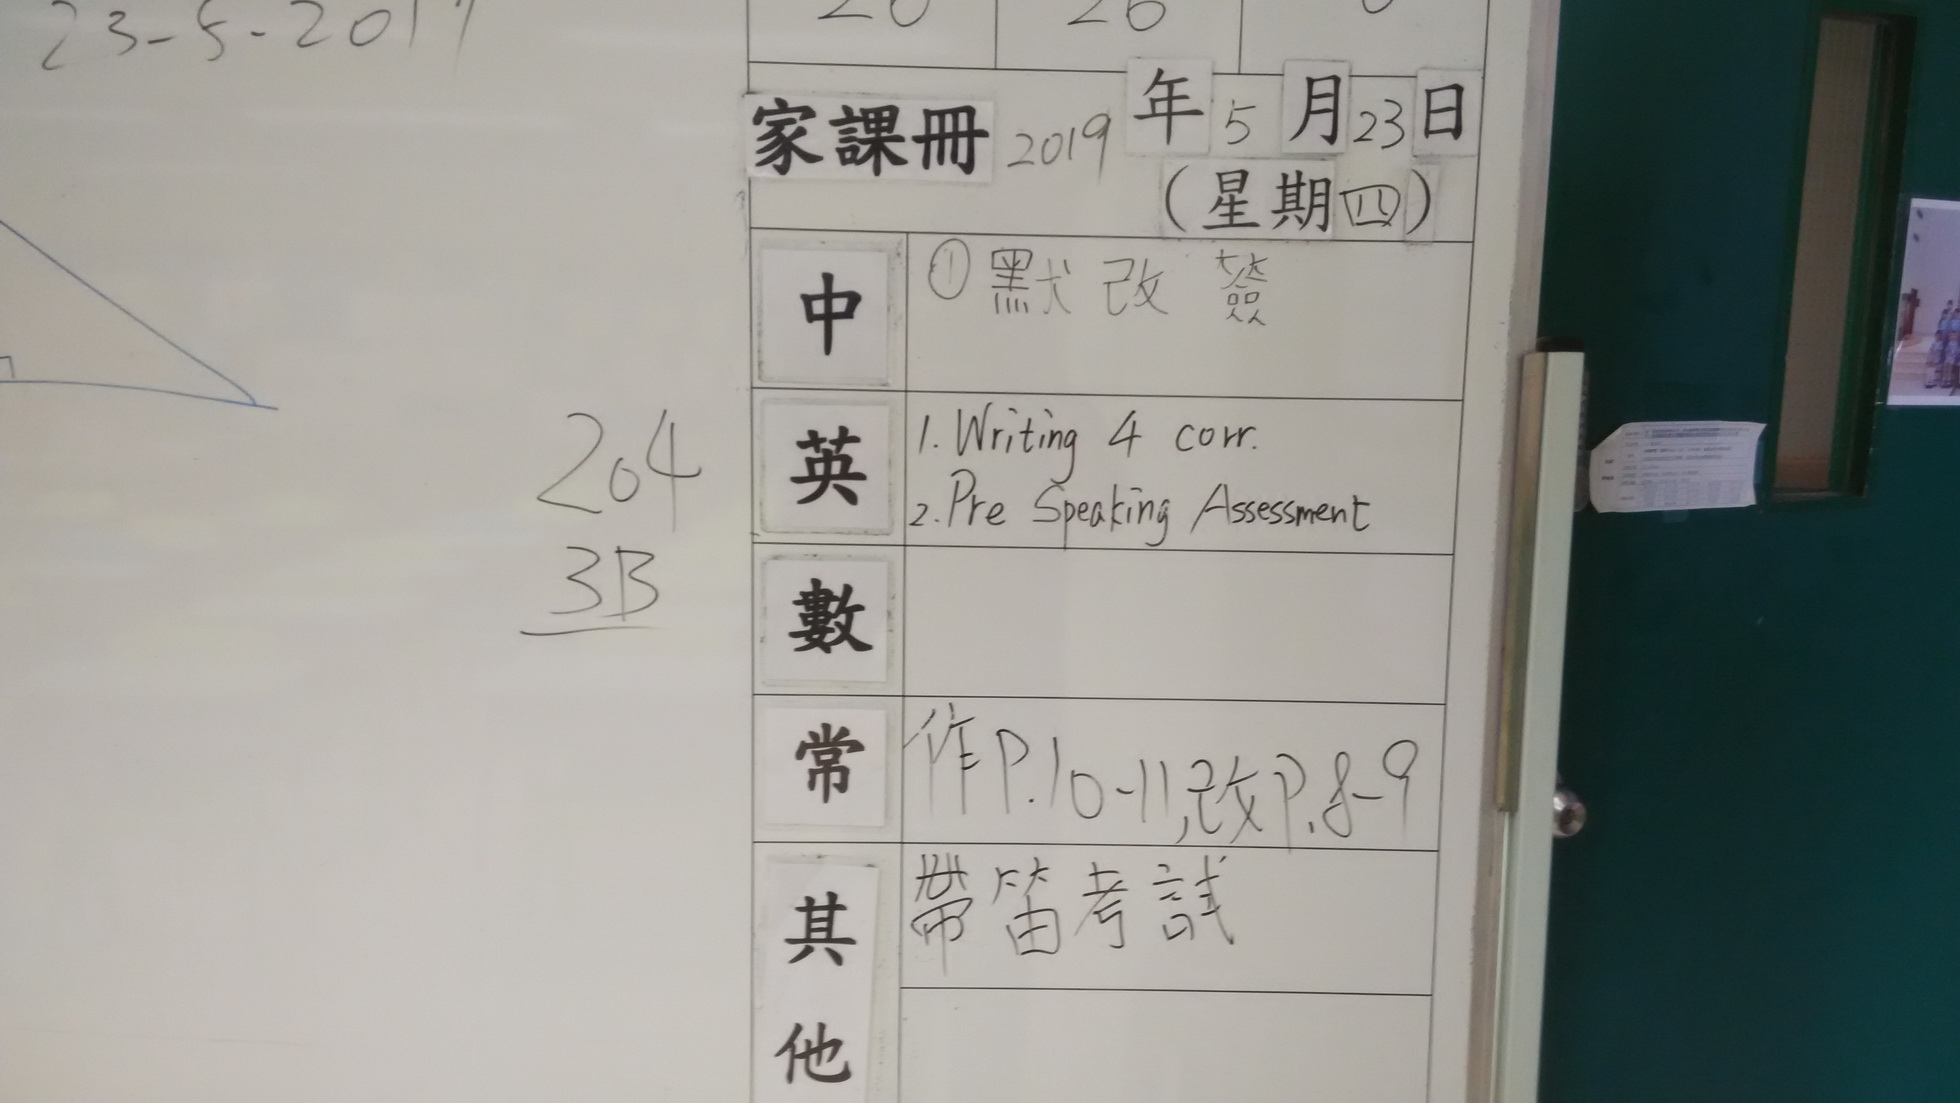 23-5-2019
20 26
家課冊 2019 年 5 月 23 日
(星期四)
中 ① 默改 簽
英 1. Writing 4 corr.
2. Pre Speaking Assessment
204
3B
數
常 作P.10-11,改P.8-9
其他 帶笛考試